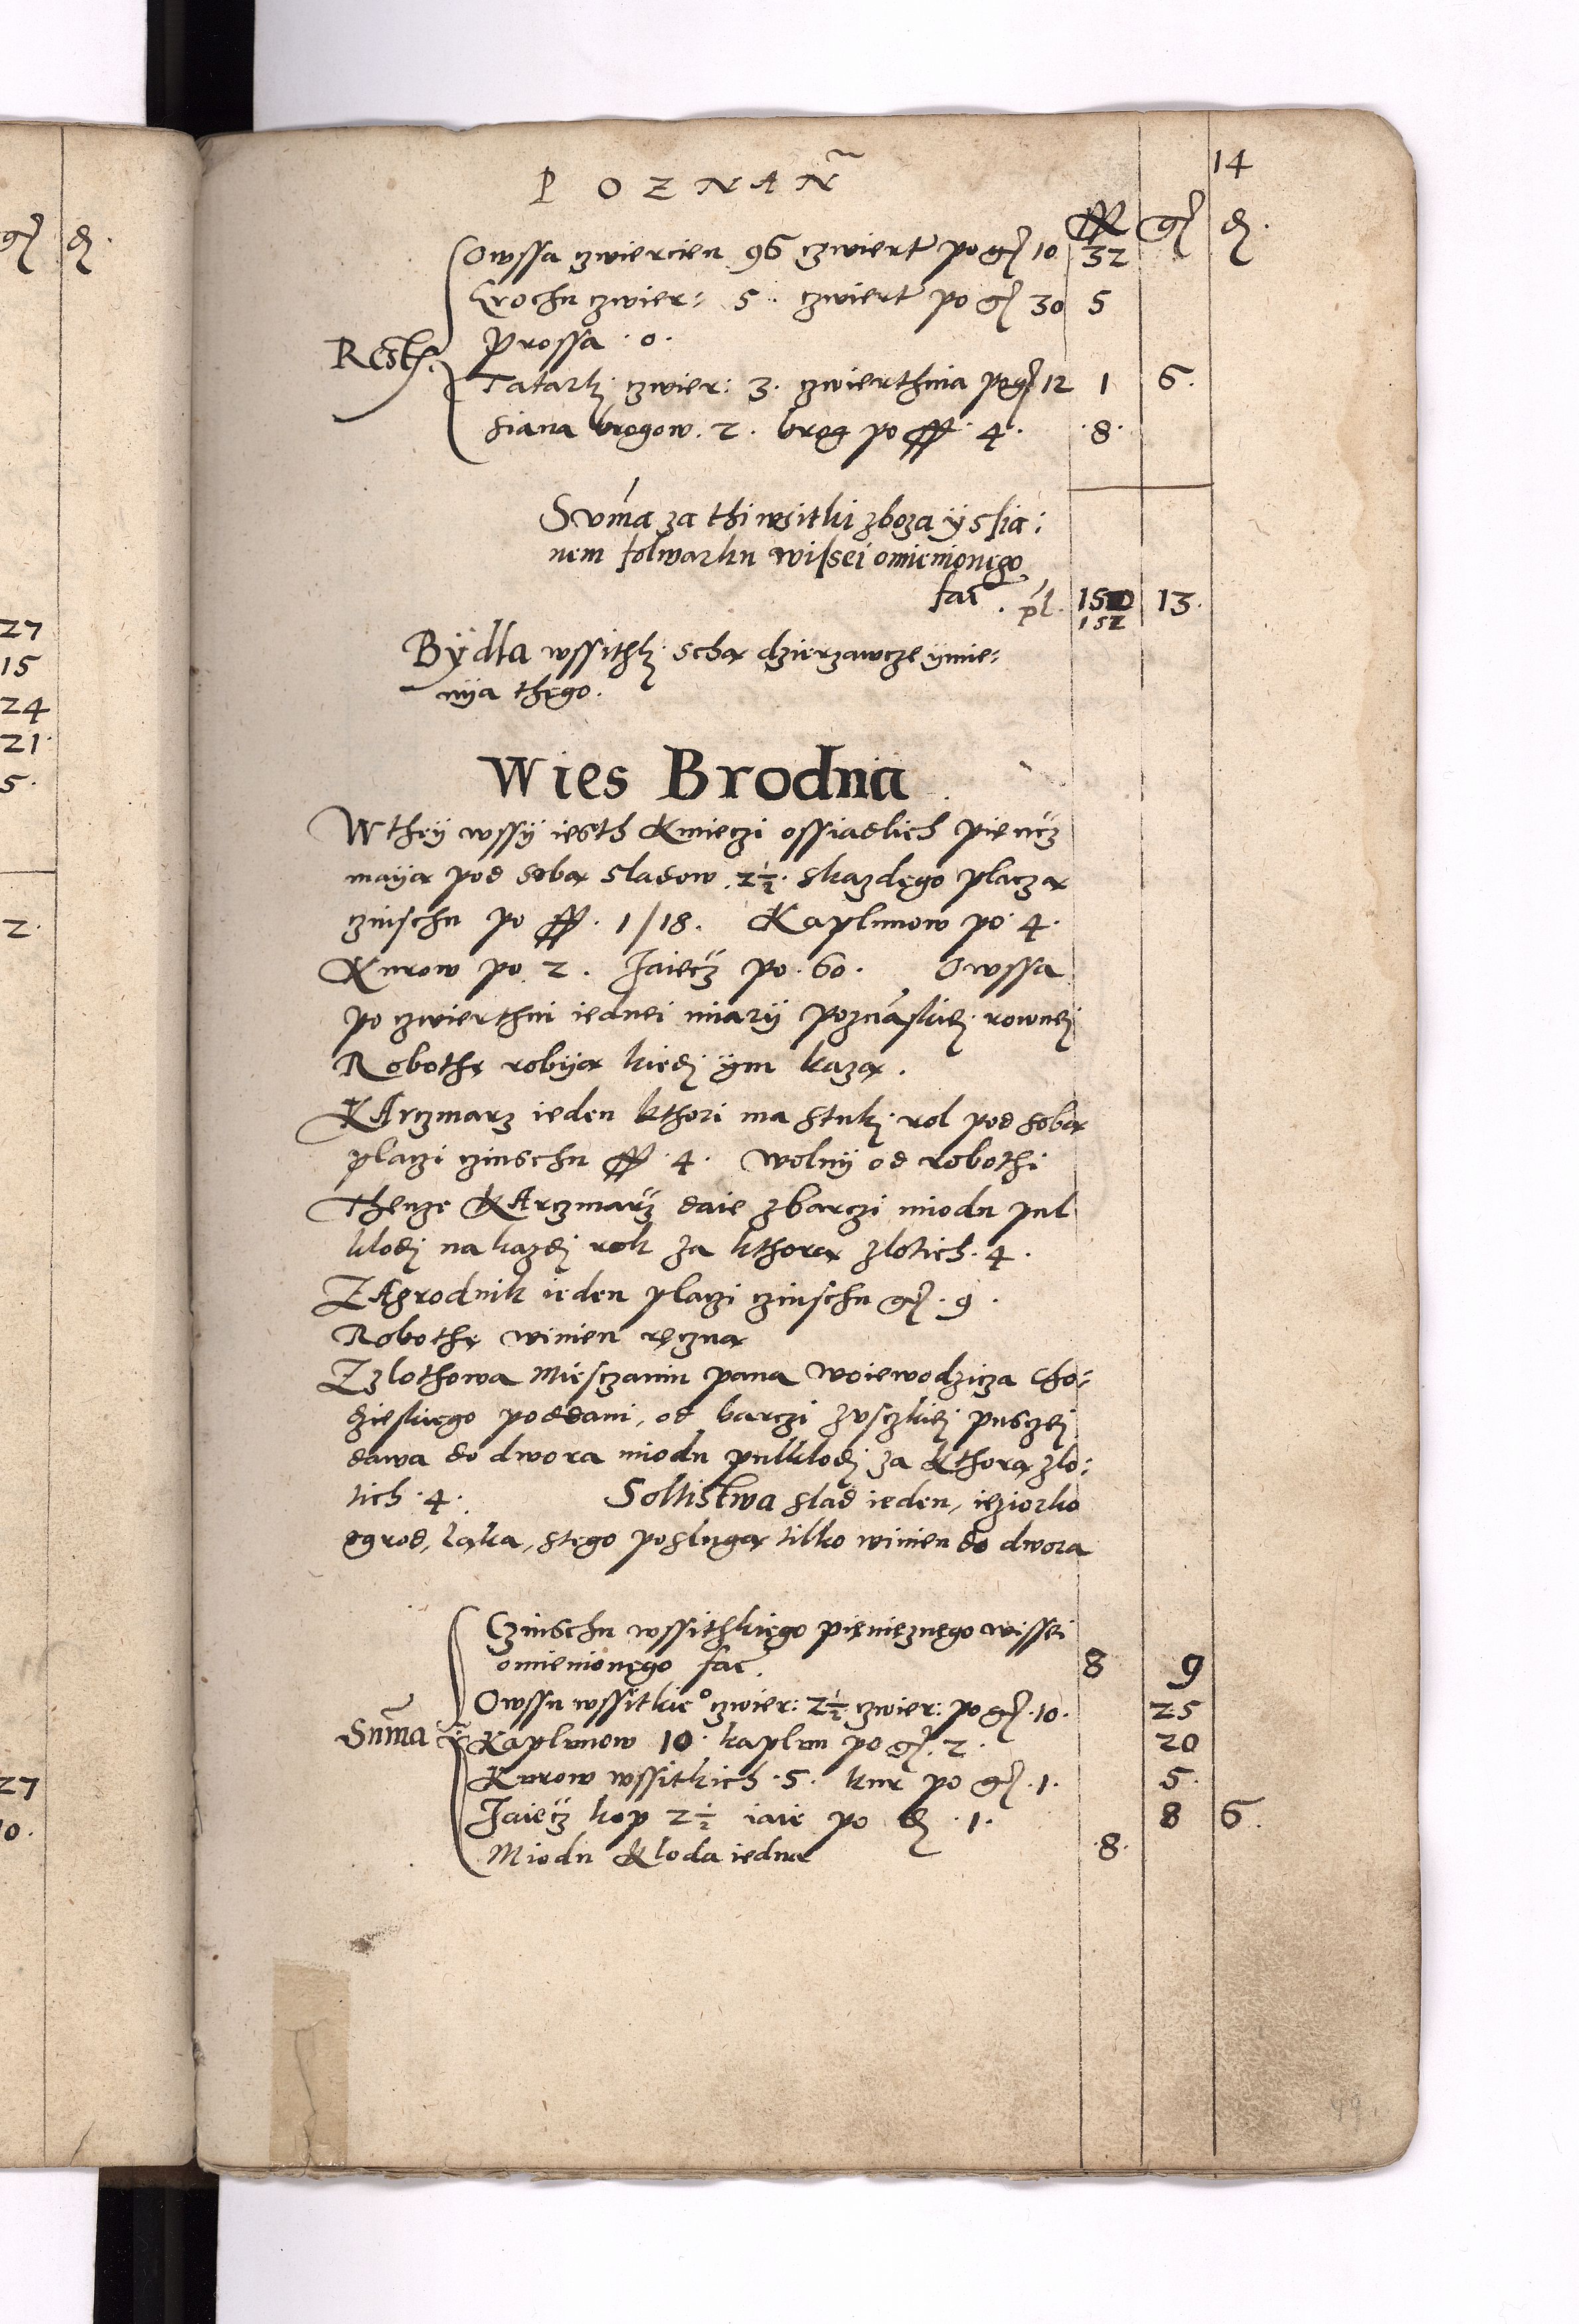 14
P O Z N A Ñ
ff gr d.
Owssa czwiercien 96 czwiert po gr 10 32
Grochu czwier: 5. czwiert po gr 30 5
Prossa .0.
Resth:
Tatarki czwier: 3. czwierthnia po gr 12 1 6.
Siana brogow. 2. brog po ff. 4. .8.
Suma za thi wsitki zboza ÿ s sia:
nem folwarku wissei omienionego
fac. pl. 150 13.
152
Bÿdła wssithki schą dzierzawcze ÿmie:
nÿa thego.
Wies Brodna
W theÿ wssÿ iesth Kmieczi ossiadlich pięncz
maÿą pod sobą sladow 2½. skazdego placzą
czinschu po ff. 1/18. Kaplunow po 4.
Kurow po 2. Jaiecz po. 60. Owssa
po czwierthni iednei miarÿ poznaskiei rownei
Robothę robÿą kiedi ÿm kazą.
KArczmarz ieden kthori ma stuki rol pod sobą
placzi czinschu ff. 4. wolnÿ od robothi
Thenze KArczmarz daie z barczi miodu pul
klodi na kazdi rok za kthorą zlotich. 4.
ZAgrodnik ieden placzi czinschu gr. 9.
Robothę winien ręczną
Z zlothowa Miesczanin pana woiewodzicza Cho:
dzieskiego poddani, od barczi z usczkiei pusczei
dawa do dwora miodu pulklodi za kthorą zlo:
tich .4. Soltistwa slad ieden, ieziorko
ogrod, ląka, stego poslugą tilko winien do dwora
Czinschu wssithkiego pienięznego wissei
omienionego fac. 8 9
Owssu wssitkieo czwier: 2½ czwier: po gr. 10. 25
Suma
Kaplunow 10. kaplun po gr. 2. 20
Kurow wssitkich .5. kur po gr .1. 5.
Jaiecz kop 2½ iaie po d .1. 8 6.
Miodu Kloda iedna .8.
gr d.
27
15
24
21
5.
2.
27
10.